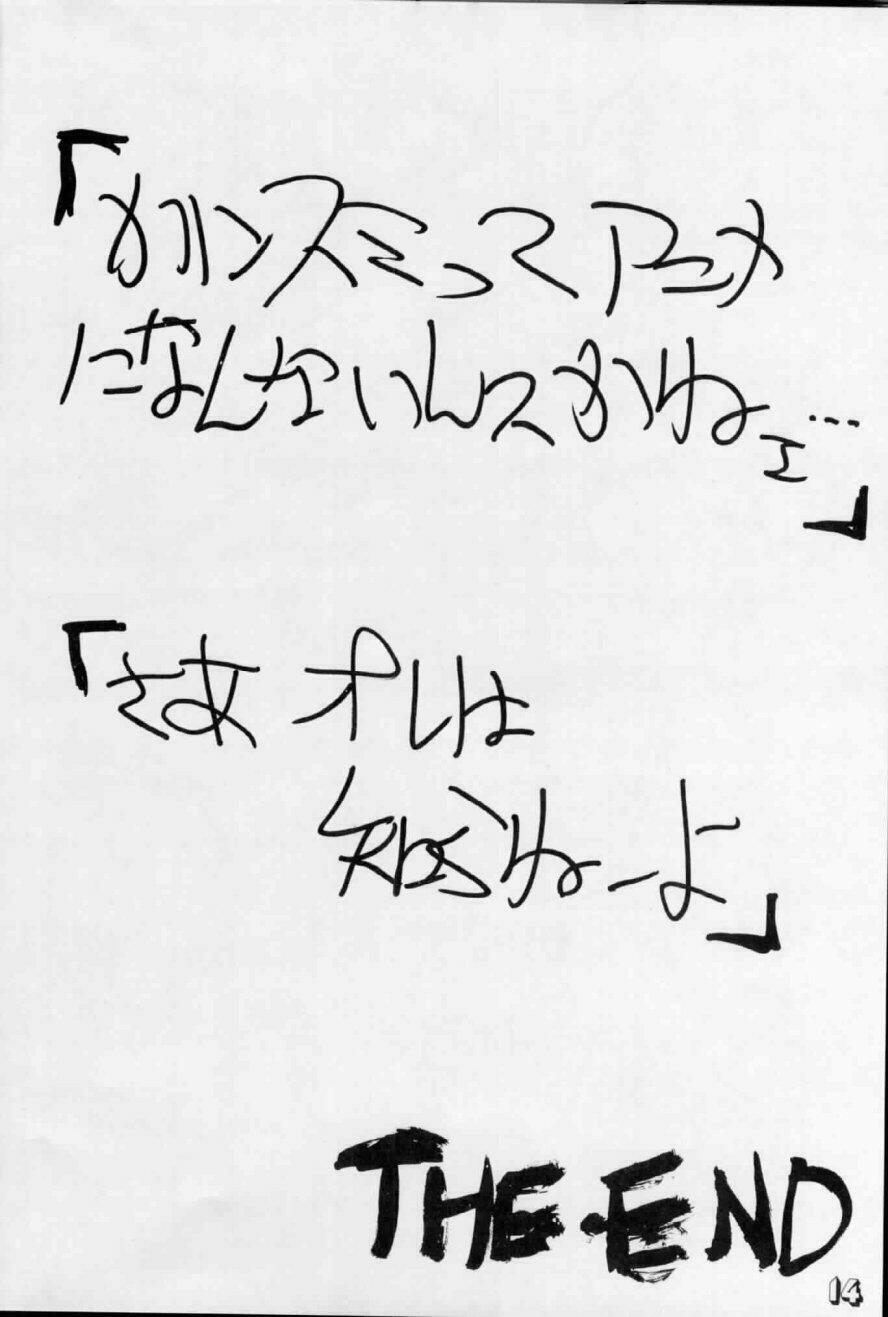 「ガンスミってアニメ
になんないんスかねェ…」
「さあ オレは
知らねーよ」
THE・END
14